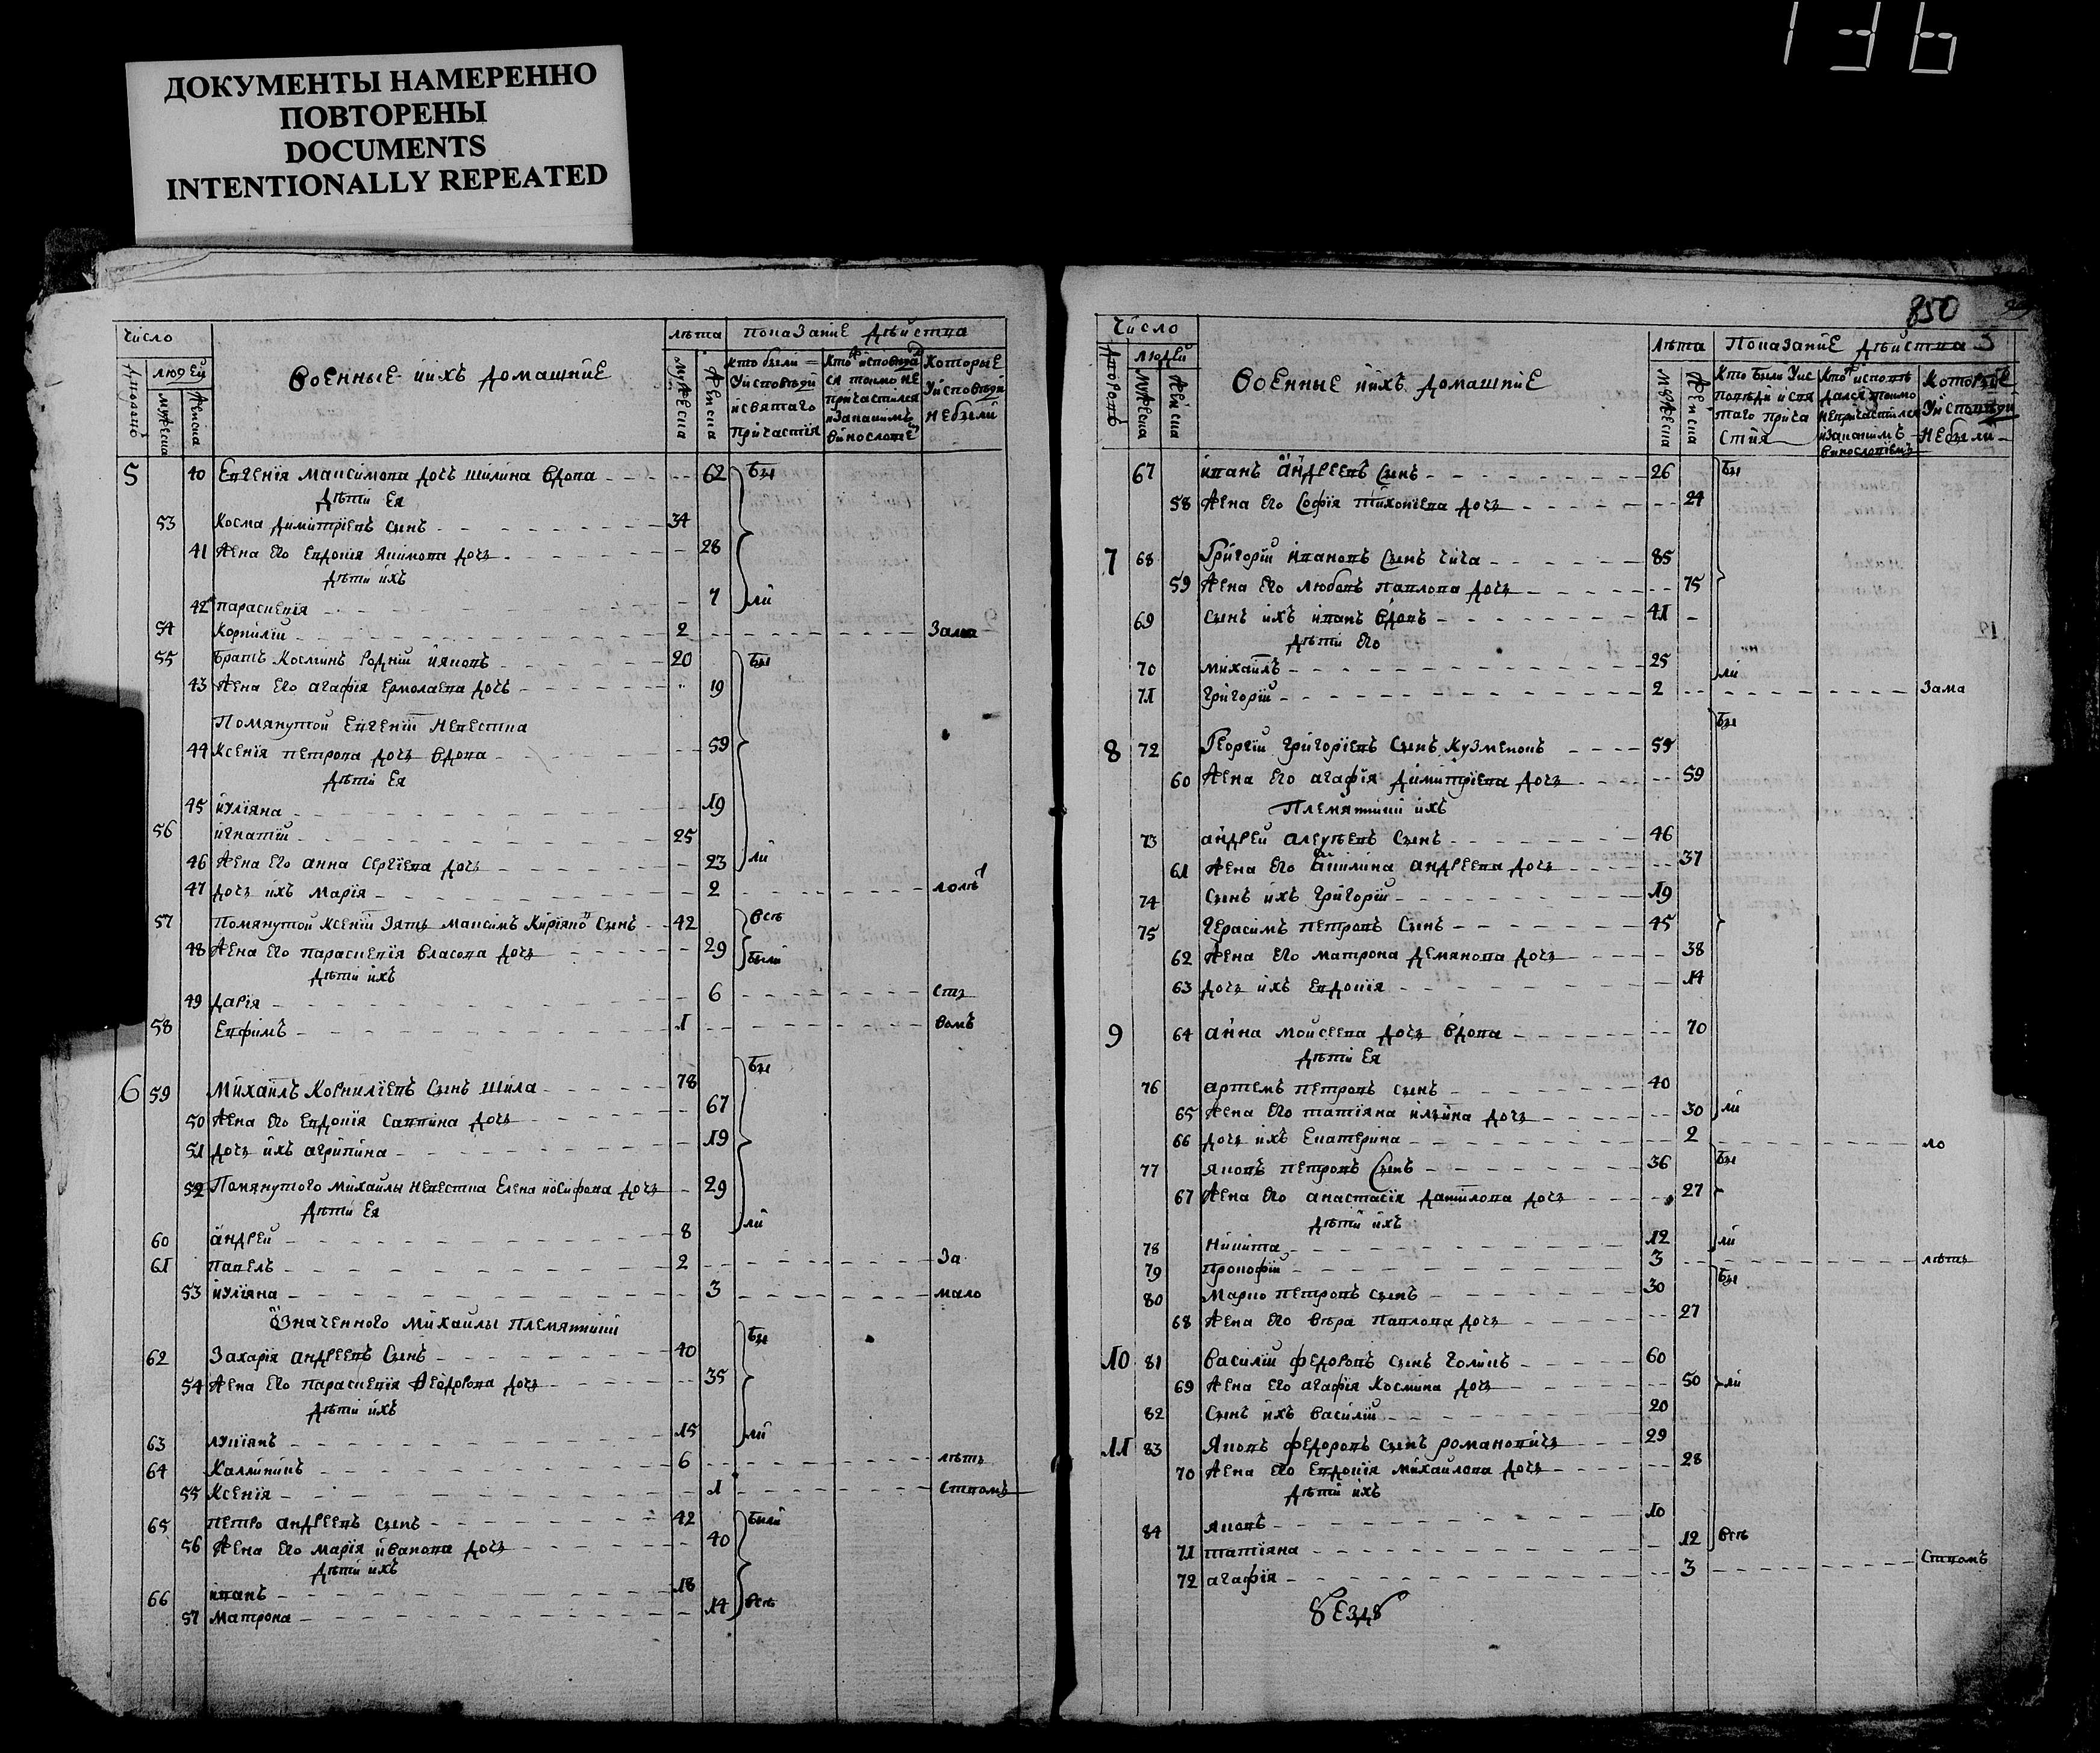 136
ДОКУМЕНТЫ НАМЕРЕННО
ПОВТОРЕНЫ
DOCUMENTS
INTENTIONALLY REPEATED
Число
людей
мужеска
женска
Военные иихъ домашние
лѣта
мужеска
женска
показание дѣйства
кто были
у исповѣди
и святаго
причастїя
кто исповѣда
ся токмо не
причастился
и за какимъ
винословіе
Которые
у исповѣди
небыли
5 40 Евгенія максимова дочь шилина вдова 62 бы
дѣти ея
53 Косма димитрїевъ сынъ 34
41 жена его евдокїя якимова дочь 28
дѣти ихъ
42 параскевїя 7 ли
54 Корнилїи 2 Зама
55 братъ косминъ родній яковъ 20 бы
43 жена его агафїя ермолаева дочь 19
Помянутой евгенїи невестка
44 ксенїя петрова дочь вдова 59
дѣти ея
45 иулїяна 19
56 игнатїи 25
46 жена его анна сергїева дочь 23 ли
47 дочь ихъ марїя 2 лолѣ
57 Помянутой ксенїи зять максимъ кирїяно сынъ 42 всѣ
48 жена его параскевїя власова дочь 29 были
дѣти ихъ
49 дарїя 6 ств
58 евфимъ 1 вомъ
6 59 михаилъ корнилїевъ сынъ шила 78 бы
50 жена его евдокїя саввина дочь 67
51 дочь ихъ агрипина 19
52 Помянутого михаилы невестка елена иосифова дочь 29
дѣти ея
60 андреи 8 ли
61 павелъ 2 За
53 иулїяна 3 мало
ѿзначенного михаилы племянники
62 Захарїя андреевъ сынъ 40 бы
54 жена его параскевїя Ѳеодорова дочь 35
дѣти ихъ
63 лукїянъ 15 ли
64 Каллиникъ 6 лѣть
55 Ксенїя 1 ствомъ
65 петро андреевъ сынъ 42 были
56 жена его марїя иванова дочь 40
дѣти ихъ
66 иванъ 18
57 матрона 14 всѣ
850
Число
людей
мужеска
женска
Военные иихъ домашние
лѣта
мужеска
женска
Показание дѣйства
кто были уис
повѣди и свя
таго прича
стїя
кто исповѣ
дался токмо
непричастился
и за какимъ
винословїемъ
Которые
уисповѣди
небыли
67 иванъ андреевъ сынъ 26 бы
58 жена его софїя тихонїева дочь 24
7 68 Григорїи ивановъ сынъ чича 85
59 жена его любовь павлова дочь 75
69 сынъ ихъ иванъ вдовъ 41
дѣти его
70 михаилъ 25 ли
71 григорїи 2 Зама
бы
8 72 Георгїи григорїевъ сынъ кузменокъ 59
60 жена его агафїя димитрїева дочь 59
Племянники ихъ
73 андреи алеуѣевъ сынъ 46
61 жена его акилина андреева дочь 37
74 сынъ ихъ григорїи 19
75 герасимъ петровъ сынъ 45
62 жена его матрона демянова дочь 38
63 дочь ихъ евдокїя 14
9 64 анна моисеева дочь вдова 70
дѣти ея
76 артемъ петровъ сынъ 40
65 жена его татїяна ильина дочь 30 ли
66 дочь ихъ екатерина 2 ло
77 яковъ петровъ сынъ 36 бы
67 жена его анастасїя данилова дочь 27
дѣти ихъ
78 никита 12 ли
79 прокофїи 3 лѣть
80 марко петровъ сынъ 30 бы
68 жена его вѣра павлова дочь 27
10 81 василїи федоровъ сынъ голикъ 60
69 жена его агафїя космина дочь 50 ли
82 сынъ ихъ василїи 20
11 83 яковъ федоровъ сынъ романовичь 29
70 жена его евдокїя михаилова дочь 28
дѣти ихъ
84 яковъ 10
71 татїяна 12 всѣ
72 агафїя 3 ствомъ